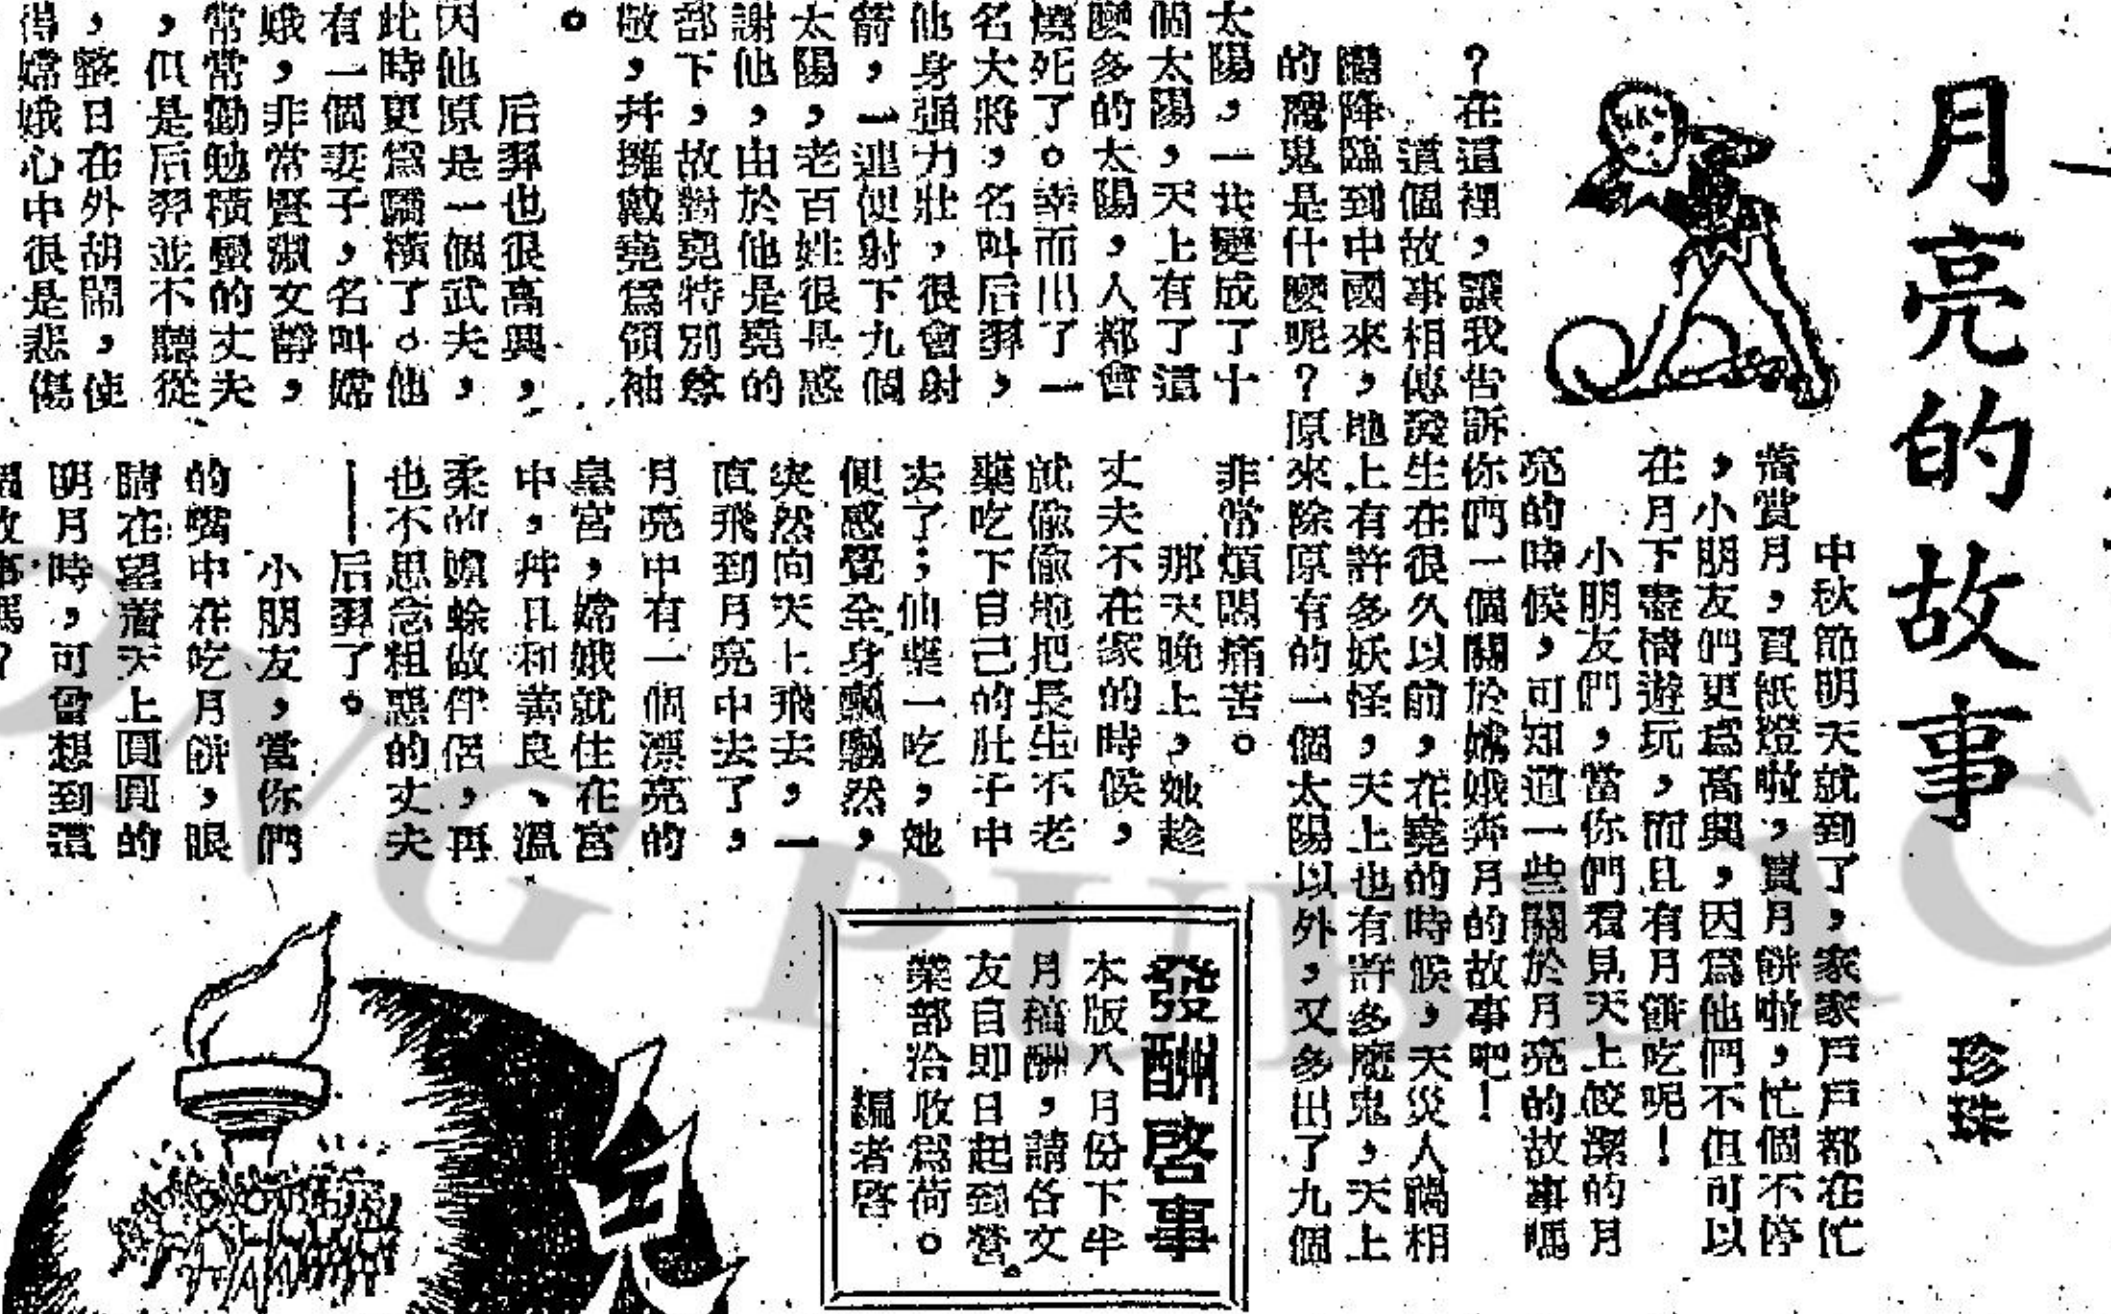 月亮的故事
珍珠
中秋節明天就到了，家家戶戶都在忙
着賞月，買紙燈啦，買月餅啦，忙個不停
，小朋友們更爲高興，因爲他們不但可以
在月下盡情遊玩，而且有月餅吃呢！
小朋友們，當你們看見天上皎潔的月
亮的時候，可知道一些關於月亮的故事嗎
？在這裡，讓我告訴你們一個關於嫦娥奔月的故事吧！
這個故事相傳發生在很久以前，在堯的時候，天災人禍相
繼降臨到中國來，地上有許多妖怪，天上也有許多魔鬼，天上
的魔鬼是什麼呢？原來除原有的一個太陽以外，又多出了九個
太陽，一共變成了十
個太陽，天上有了這
麼多的太陽，人都會
燒死了。幸而出了一
名大將，名叫后羿，
他身强力壯，很會射
箭，一連便射下九個
太陽，老百姓很是感
謝他，由於他是堯的
部下，故對堯特別尊
敬，并擁戴堯爲領袖
。
后羿也很高興，
因他原是一個武夫，
此時更爲驕橫了。他
有一個妻子，名叫嫦
娥，非常賢淑文靜，
常常勸勉橫蠻的丈夫
，但是后羿並不聽從
，整日在外胡鬧，使
得嫦娥心中很是悲傷
非常煩悶痛苦。
那天晚上，她趁
丈夫不在家的時候，
就偷偷地把長生不老
藥吃下自己的肚子中
去了；仙藥一吃，她
便感覺全身飄飄然，
突然向天上飛去，一
直飛到月亮中去了，
月亮中有一個漂亮的
皇宮，嫦娥就住在宮
中，幷且和善良、溫
柔的蟾蜍做伴侶，再
也不思念粗惡的丈夫
——后羿了。
小朋友，當你們
的嘴中在吃月餅，眼
睛在望着天上圓圓的
明月時，可曾想到這
個故事嗎？
發酬啓事
本版八月份下半
月稿酬，請各文
友自即日起到營
業部洽收爲荷。
編者啓
兒
ONG PUBLIC